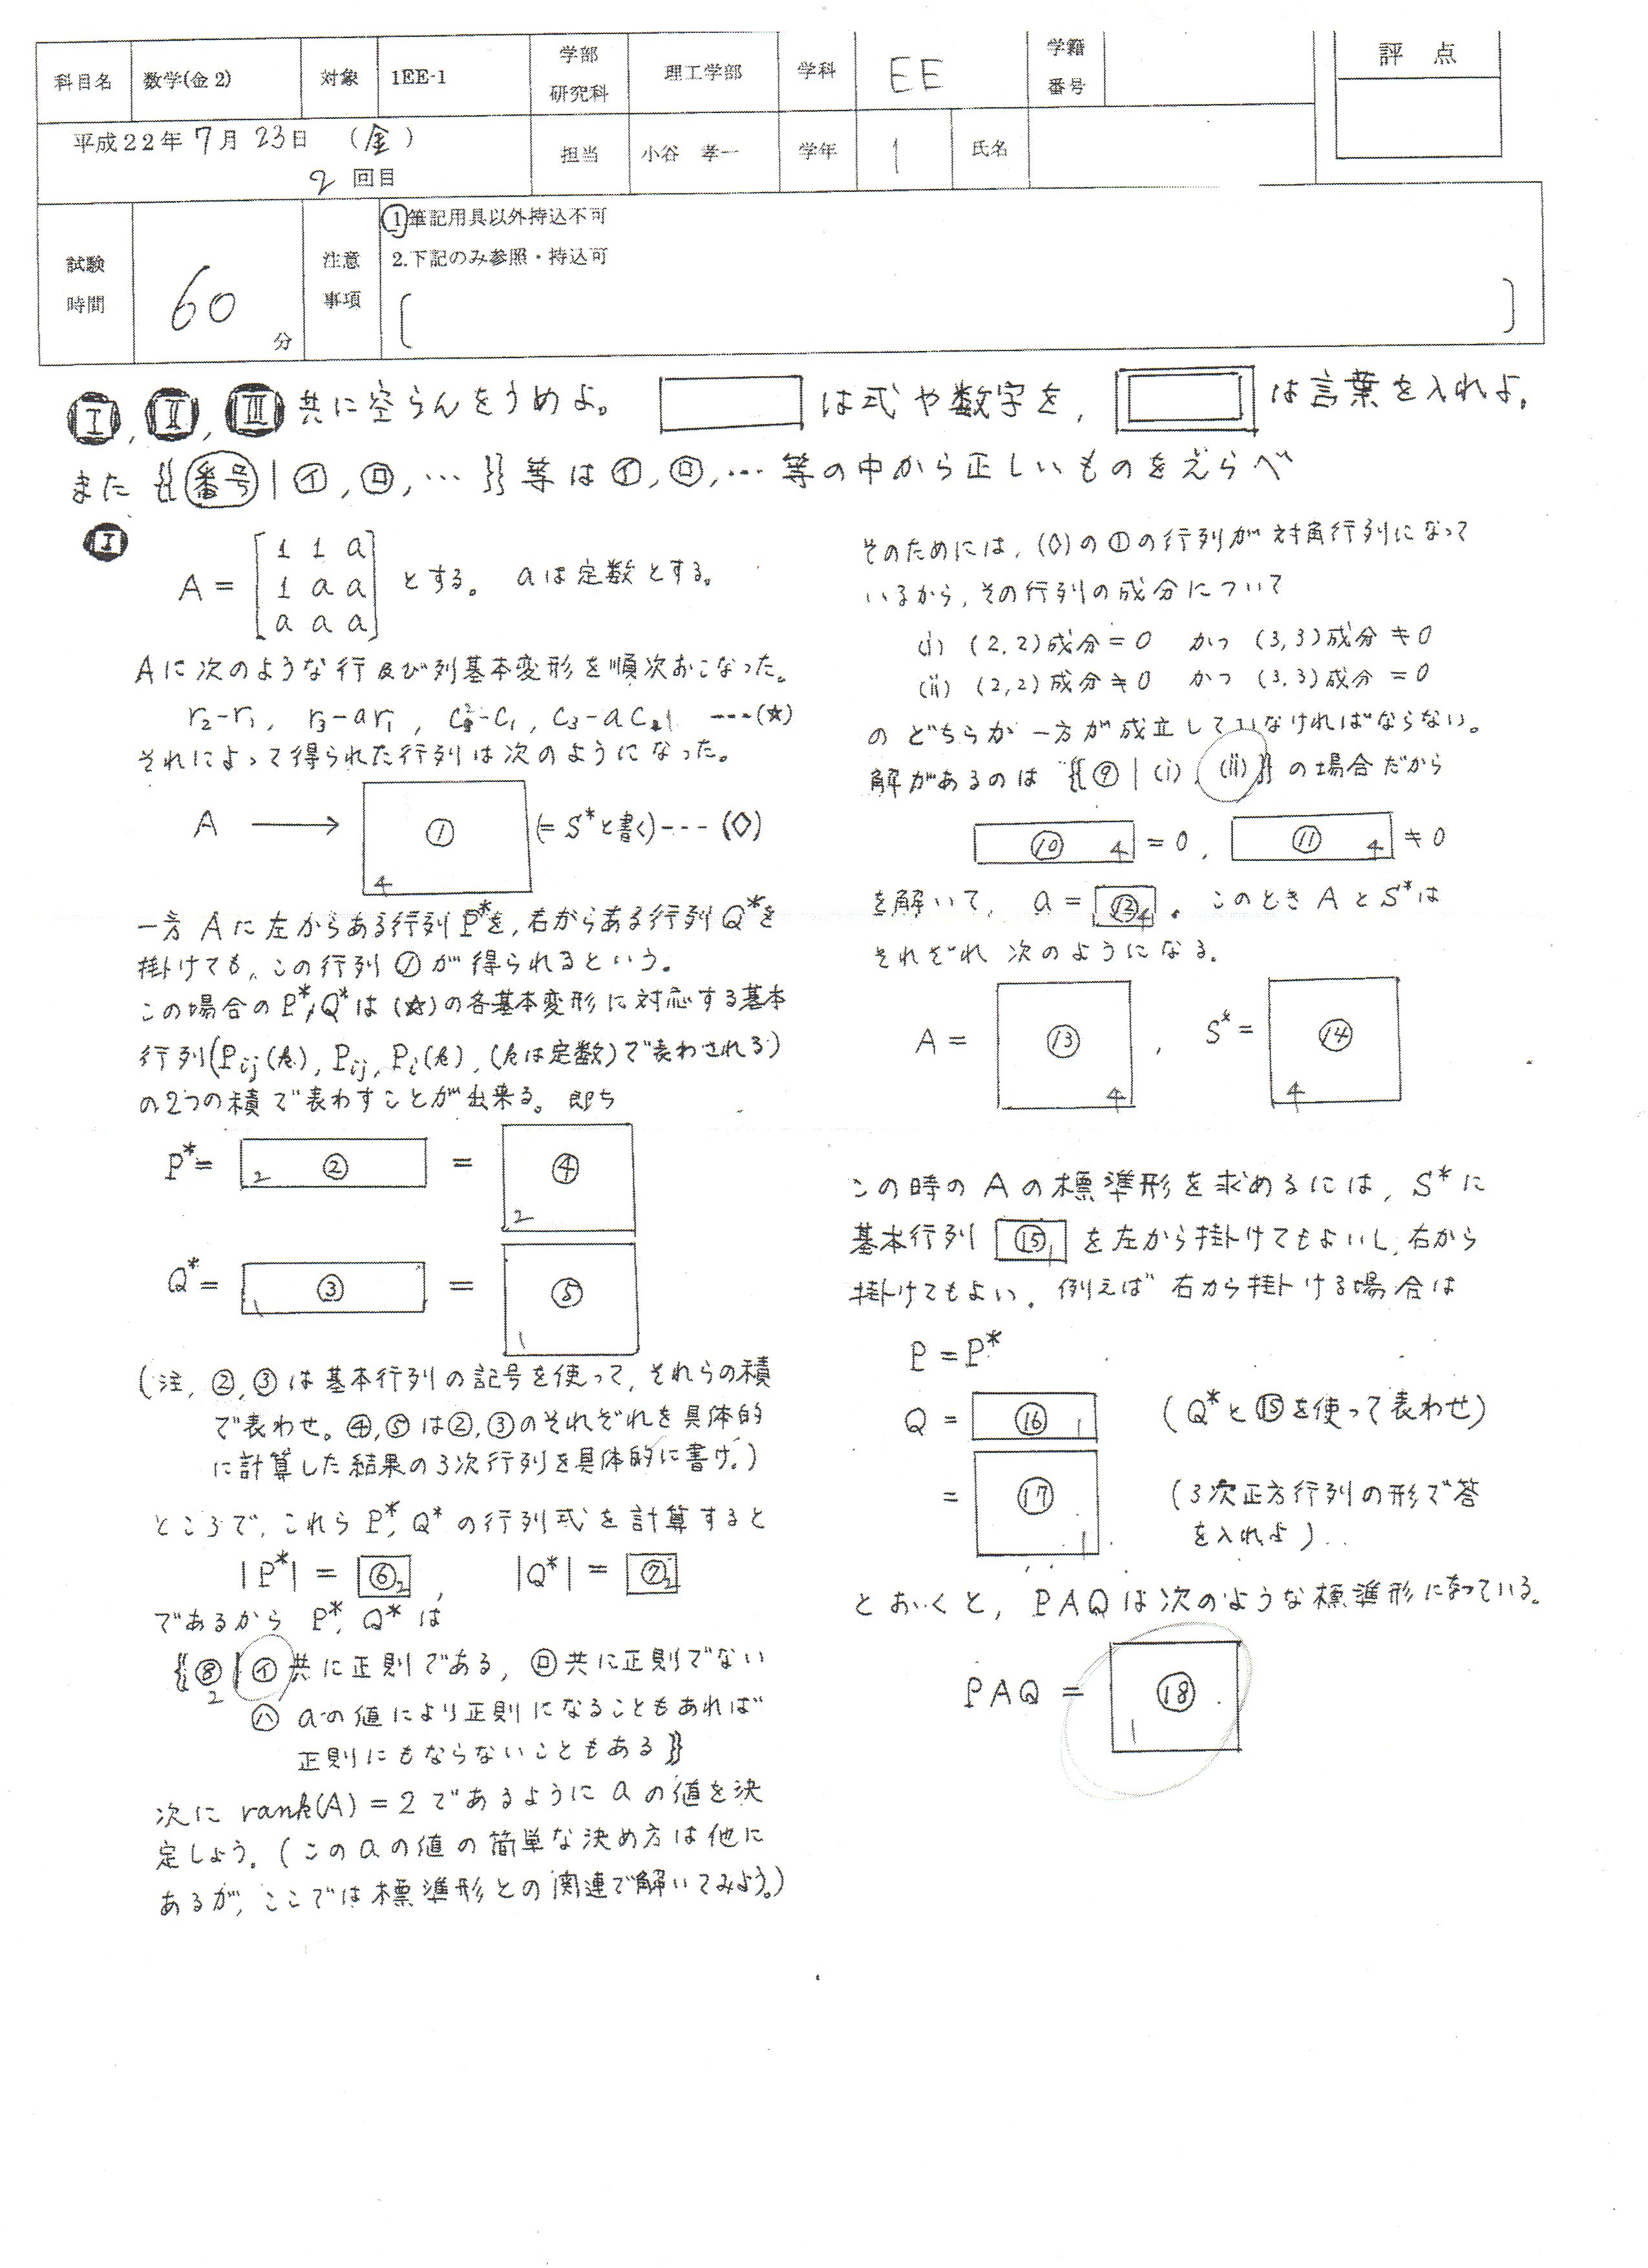 科目名 数学(金2) 対象 1EE-1 学部 研究科 理工学部 学科 EE 学籍 番号 評 点
平成22年 7月 23日 (金)
2 回目
担当 小谷 孝一 学年 1 氏名
試験 時間 60 分
注意 事項
①筆記用具以外持込不可
2.下記のみ参照・持込可
Ⅰ, Ⅱ, Ⅲ 共に空らんをうめよ。 は式や数字を, は言葉を入れよ。
また {{番号|㋑, ㋺, … }} 等は㋑, ㋺, … 等の中から正しいものをえらべ
Ⅰ
A = [1 1 a
1 a a
a a a] とする。 aは定数とする。
Aに次のような行及び列基本変形を順次おこなった。
r2-r1, r3-ar1, c2-c1, c3-ac1 ---(☆)
それによって得られた行列は次のようになった。
A → ① 4 (= S*と書く)--- (◇)
一方 Aに左からある行列P*を, 右からある行列Q*を
掛けても, この行列①が得られるという。
この場合のP*, Q*は(☆)の各基本変形に対応する基本
行列(Pij(k), Pij, Pi(k), (kは定数)で表わされる)
の2つの積で表わすことが出来る。即ち
P* = ② 2 = ④ 2
Q* = ③ 1 = ⑤ 1
(注, ②,③は基本行列の記号を使って, それらの積
で表わせ。④,⑤は②,③のそれぞれを具体的
に計算した結果の3次行列を具体的に書け。)
ところで, これらP*, Q*の行列式を計算すると
|P*| = ⑥ 2 , |Q*| = ⑦ 2
であるから P*, Q*は
{{⑧ 2 | ㋑共に正則である, ㋺共に正則でない
㋩ aの値により正則になることもあれば
正則にもならないこともある}}
次に rank(A) = 2 であるように aの値を決
定しよう。(このaの値の簡単な決め方は他に
あるが, ここでは標準形との関連で解いてみよう。)
そのためには, (◇)の①の行列が対角行列になって
いるから, その行列の成分について
(i) (2,2)成分 = 0 かつ (3,3)成分 ≠ 0
(ii) (2,2)成分 ≠ 0 かつ (3,3)成分 = 0
のどちらか一方が成立していなければならない。
解があるのは {{⑨ | (i), (ii)}} の場合だから
⑩ 4 = 0, ⑪ 4 ≠ 0
を解いて, a = ⑫ 4 。このとき AとS*は
それぞれ 次のようになる。
A = ⑬ 4 , S* = ⑭ 4
この時の A の標準形を求めるには, S*に
基本行列 ⑮ 1 を左から掛けてもよいし, 右から
掛けてもよい。例えば 右から掛ける場合は
P = P*
Q = ⑯ 1 (Q*と⑮を使って表わせ)
= ⑰ 1 (3次正方行列の形で答
を入れよ)
とおくと, PAQは次のような標準形になっている。
PAQ = ⑱ 1